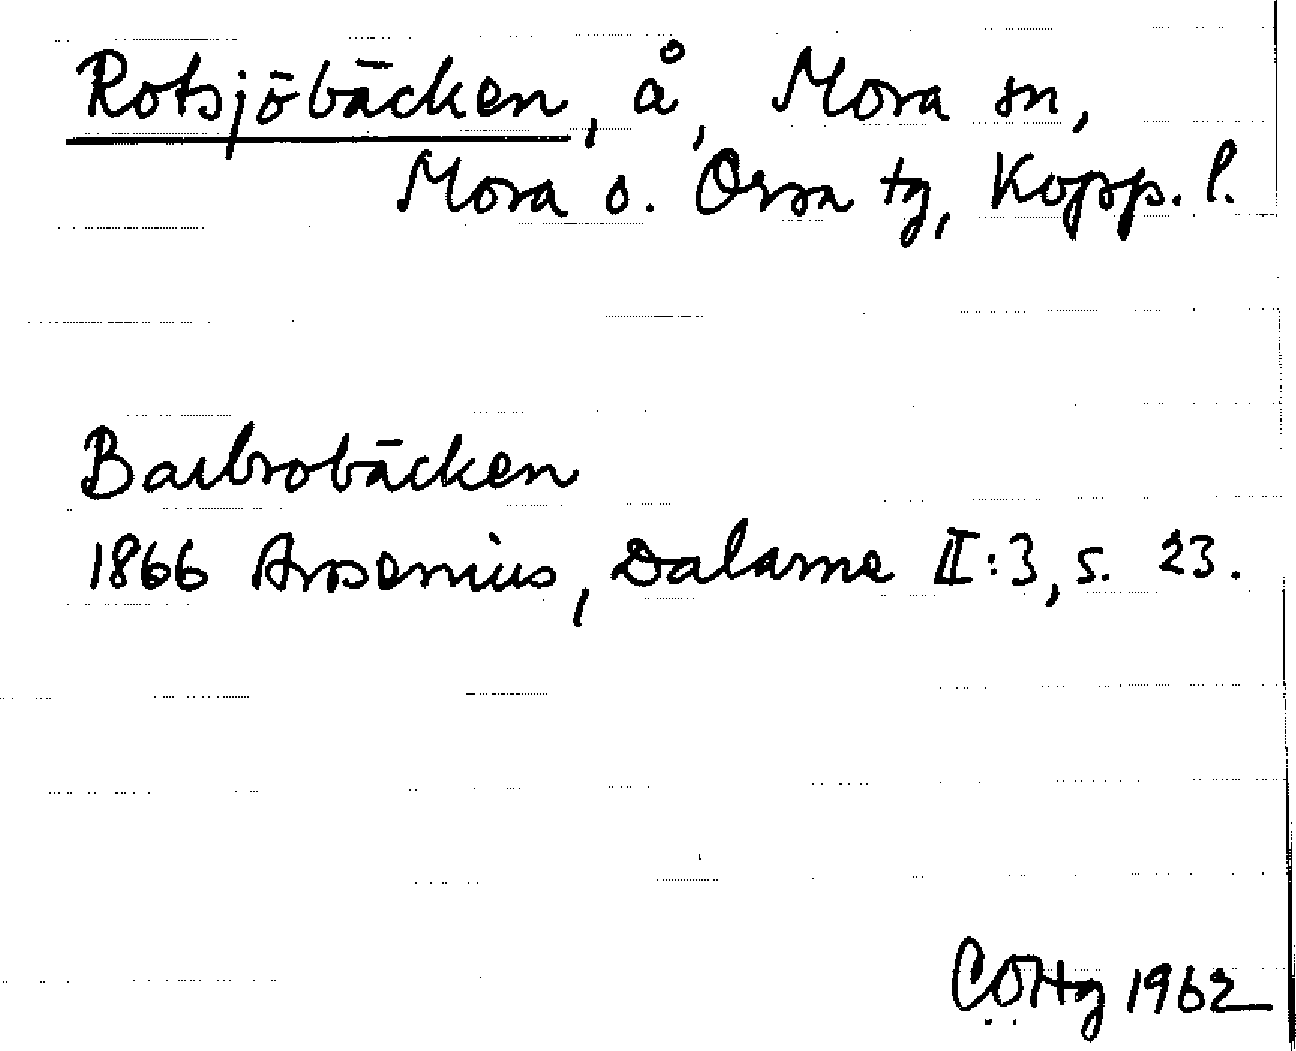 Rotsjöbäcken, å, Mora sn,
Mora o. Orsa tg, Kopp. l.
Barbrobäcken
1866 Arosenius, Dalarne II:3, s. 23.
COHg 1962